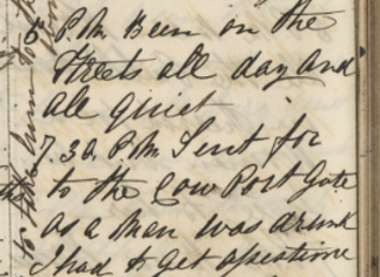 5 P.M. Been in the
Streets all day and
all quiet
7.30. P.M. Sent for
to the Cow Port Gate
as a man was drunk
I had to get
to take him to